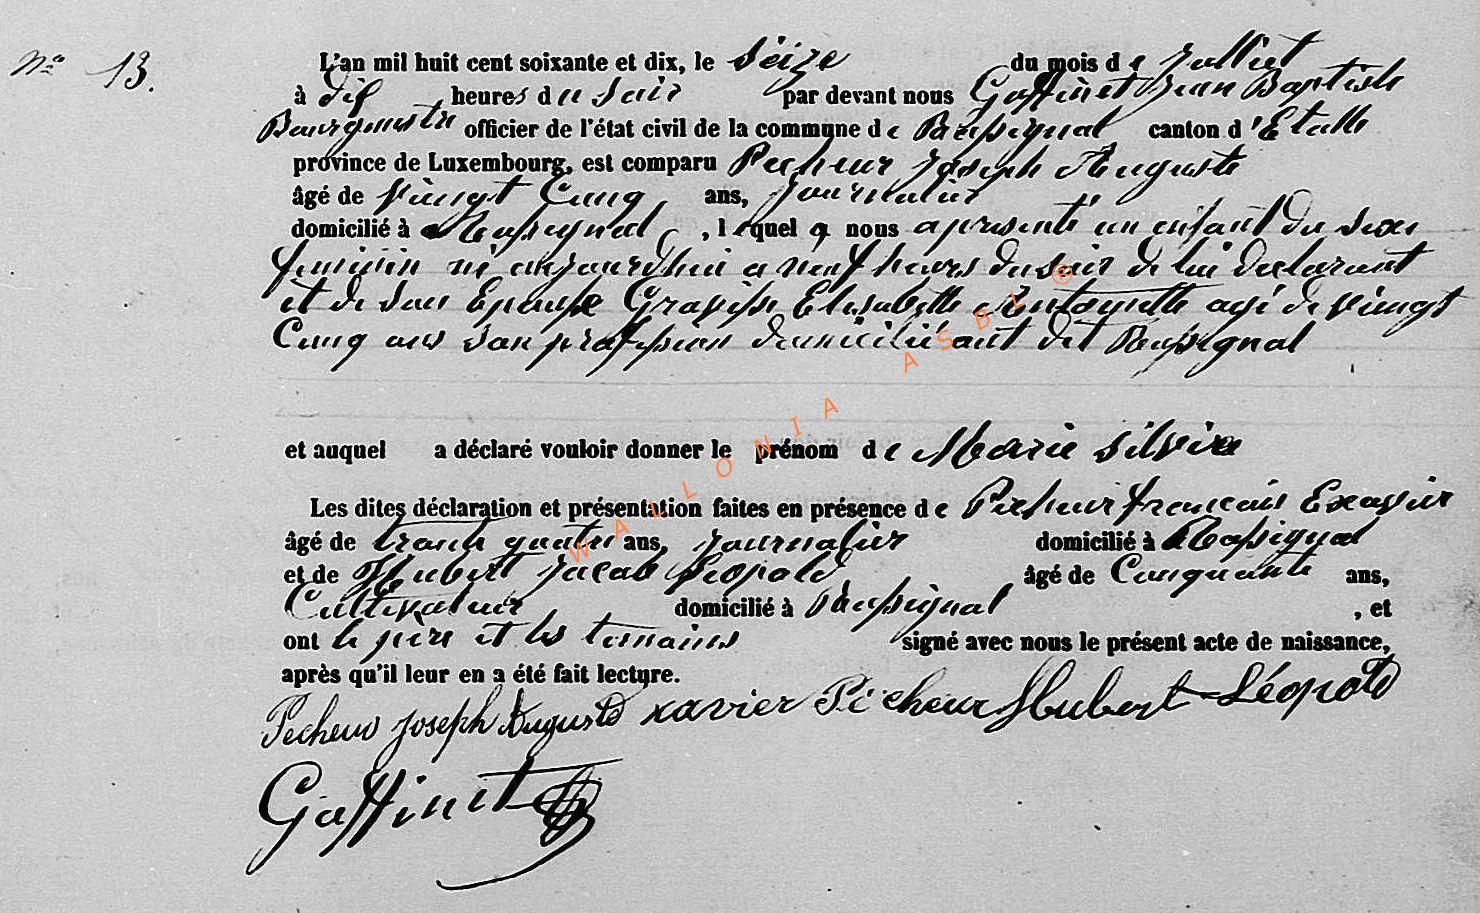 N° 13.
L'an mil huit cent soixante et dix, le seize du mois de Julliet
à dix heures du Soir par devant nous Goffinet Jean Baptiste
Bourgmestre officier de l'état civil de la commune de Rossignol canton d'Etalle
province de Luxembourg, est comparu Pecheur Joseph Auguste
âgé de Vingt Cinq ans, Journalier
domicilié à Rossignol, lequel a nous a présenté un enfant du sexe
feminin né aujourdhui a neuf heures du soir de lui declarant
et de son Epouse Gravisse Elisabette Antoynette agé de Vingt
Cinq ans san profession domicilié audit Rossignol
et auquel a déclaré vouloir donner le prénom de Marie Silvie
Les dites déclaration et présentation faites en présence de Pecheur francois Exavier
âgé de trante quatre ans, Journalier domicilié à Rossignol
et de Hubert Jacob Léopold âgé de Cinquante ans,
Cultivateur domicilié à Rossignol, et
ont le père et les temoins signé avec nous le présent acte de naissance,
après qu'il leur en a été fait lecture.
Pecheur Joseph Auguste xavier Pécheur Hubert Léopold
Goffinet
WALLONIA ASBL ®